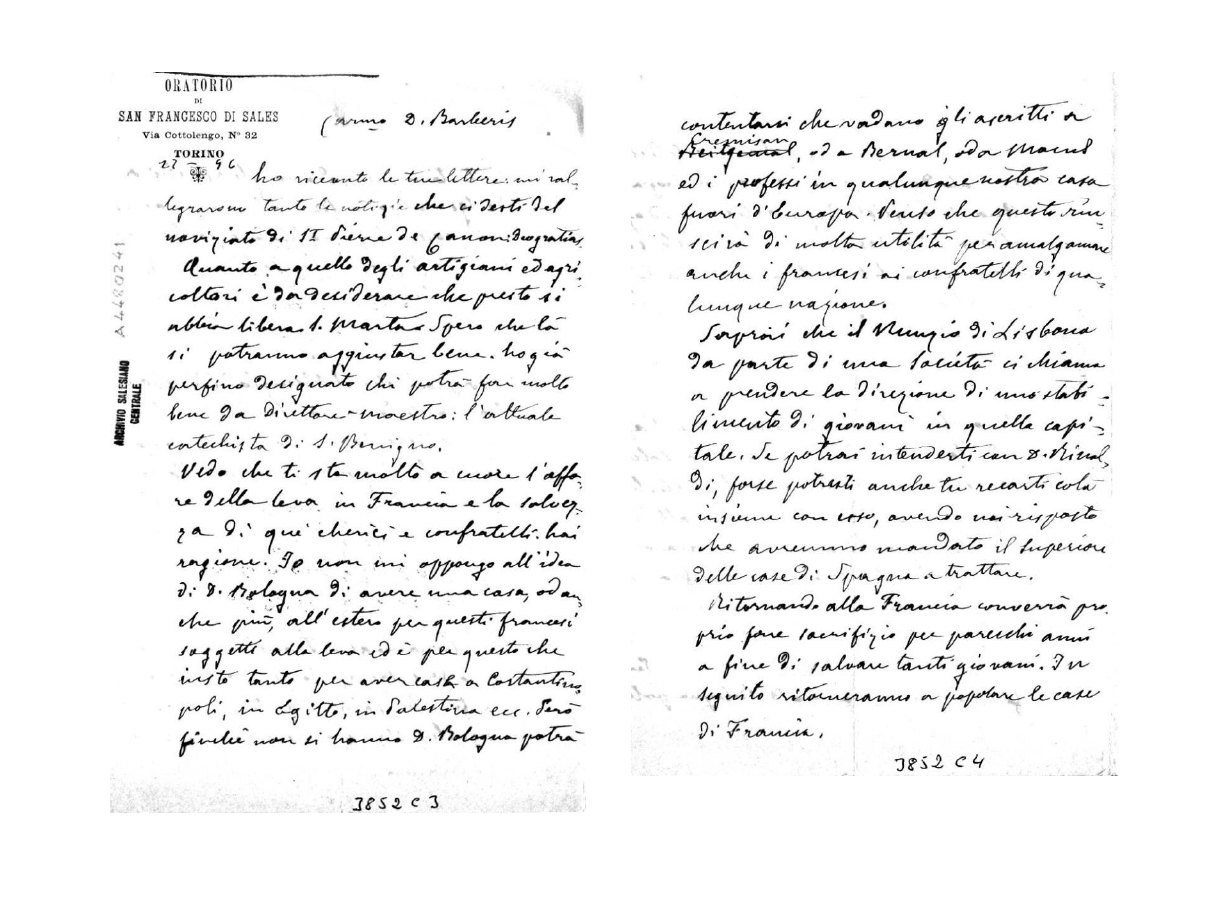 ORATORIO
DI
SAN FRANCESCO DI SALES
Via Cottolengo, N° 32
TORINO
27 96
Carmo D. Barberis
ho ricevuto le tue lettere: mi ral-
legrarono tanto le notizie che ci desti del
noviziato di St Pierre de Canon: Deogratias.
Quanto a quello degli artigiani ed agri-
coltori è da desiderare che presto si
abbia libera S. Marta. Spero che là
si potranno aggiustar bene. ho già
perfino designato chi potrà far molto
bene da Direttore-maestro: l'attuale
catechista di S. Benigno.
Vedo che ti sta molto a cuore l'affa-
re della leva in Francia e la salvez-
za di que' cherici e confratelli. hai
ragione. Io non mi oppongo all'idea
di D. Bologna di avere una casa, od an-
che più, all'estero per questi francesi
soggetti alla leva ed è per questo che
insto tanto per aver case a Costantino-
poli, in Egitto, in Palestina ecc. Però
finchè non si hanno D. Bologna potrà
3852 C 3
A4480241
ARCHIVIO SALESIANO
CENTRALE
contentarsi che vadano gli ascritti a
Cremisan
, od a Bernal, od a
ed i professi in qualunque nostra casa
fuori d'Europa. Penso che questo riu-
scirà di molta utilità per amalgamare
anche i francesi ai confratelli di qua-
lunque nazione.
Saprai che il Nunzio di Lisbona
da parte di una Società ci chiama
a prendere la direzione di uno stabi-
limento di giovani in quella capi-
tale. Se potrai intenderti con D. Rinal-
di, forse potresti anche tu recarti colà
insieme con esso, avendo noi risposto
che avremmo mandato il superiore
delle case di Spagna a trattare.
Ritornando alla Francia converrà pro-
prio fare sacrifizio per parecchi anni
a fine di salvare tanti giovani. In
seguito ritorneranno a popolare le case
di Francia.
3852 C 4